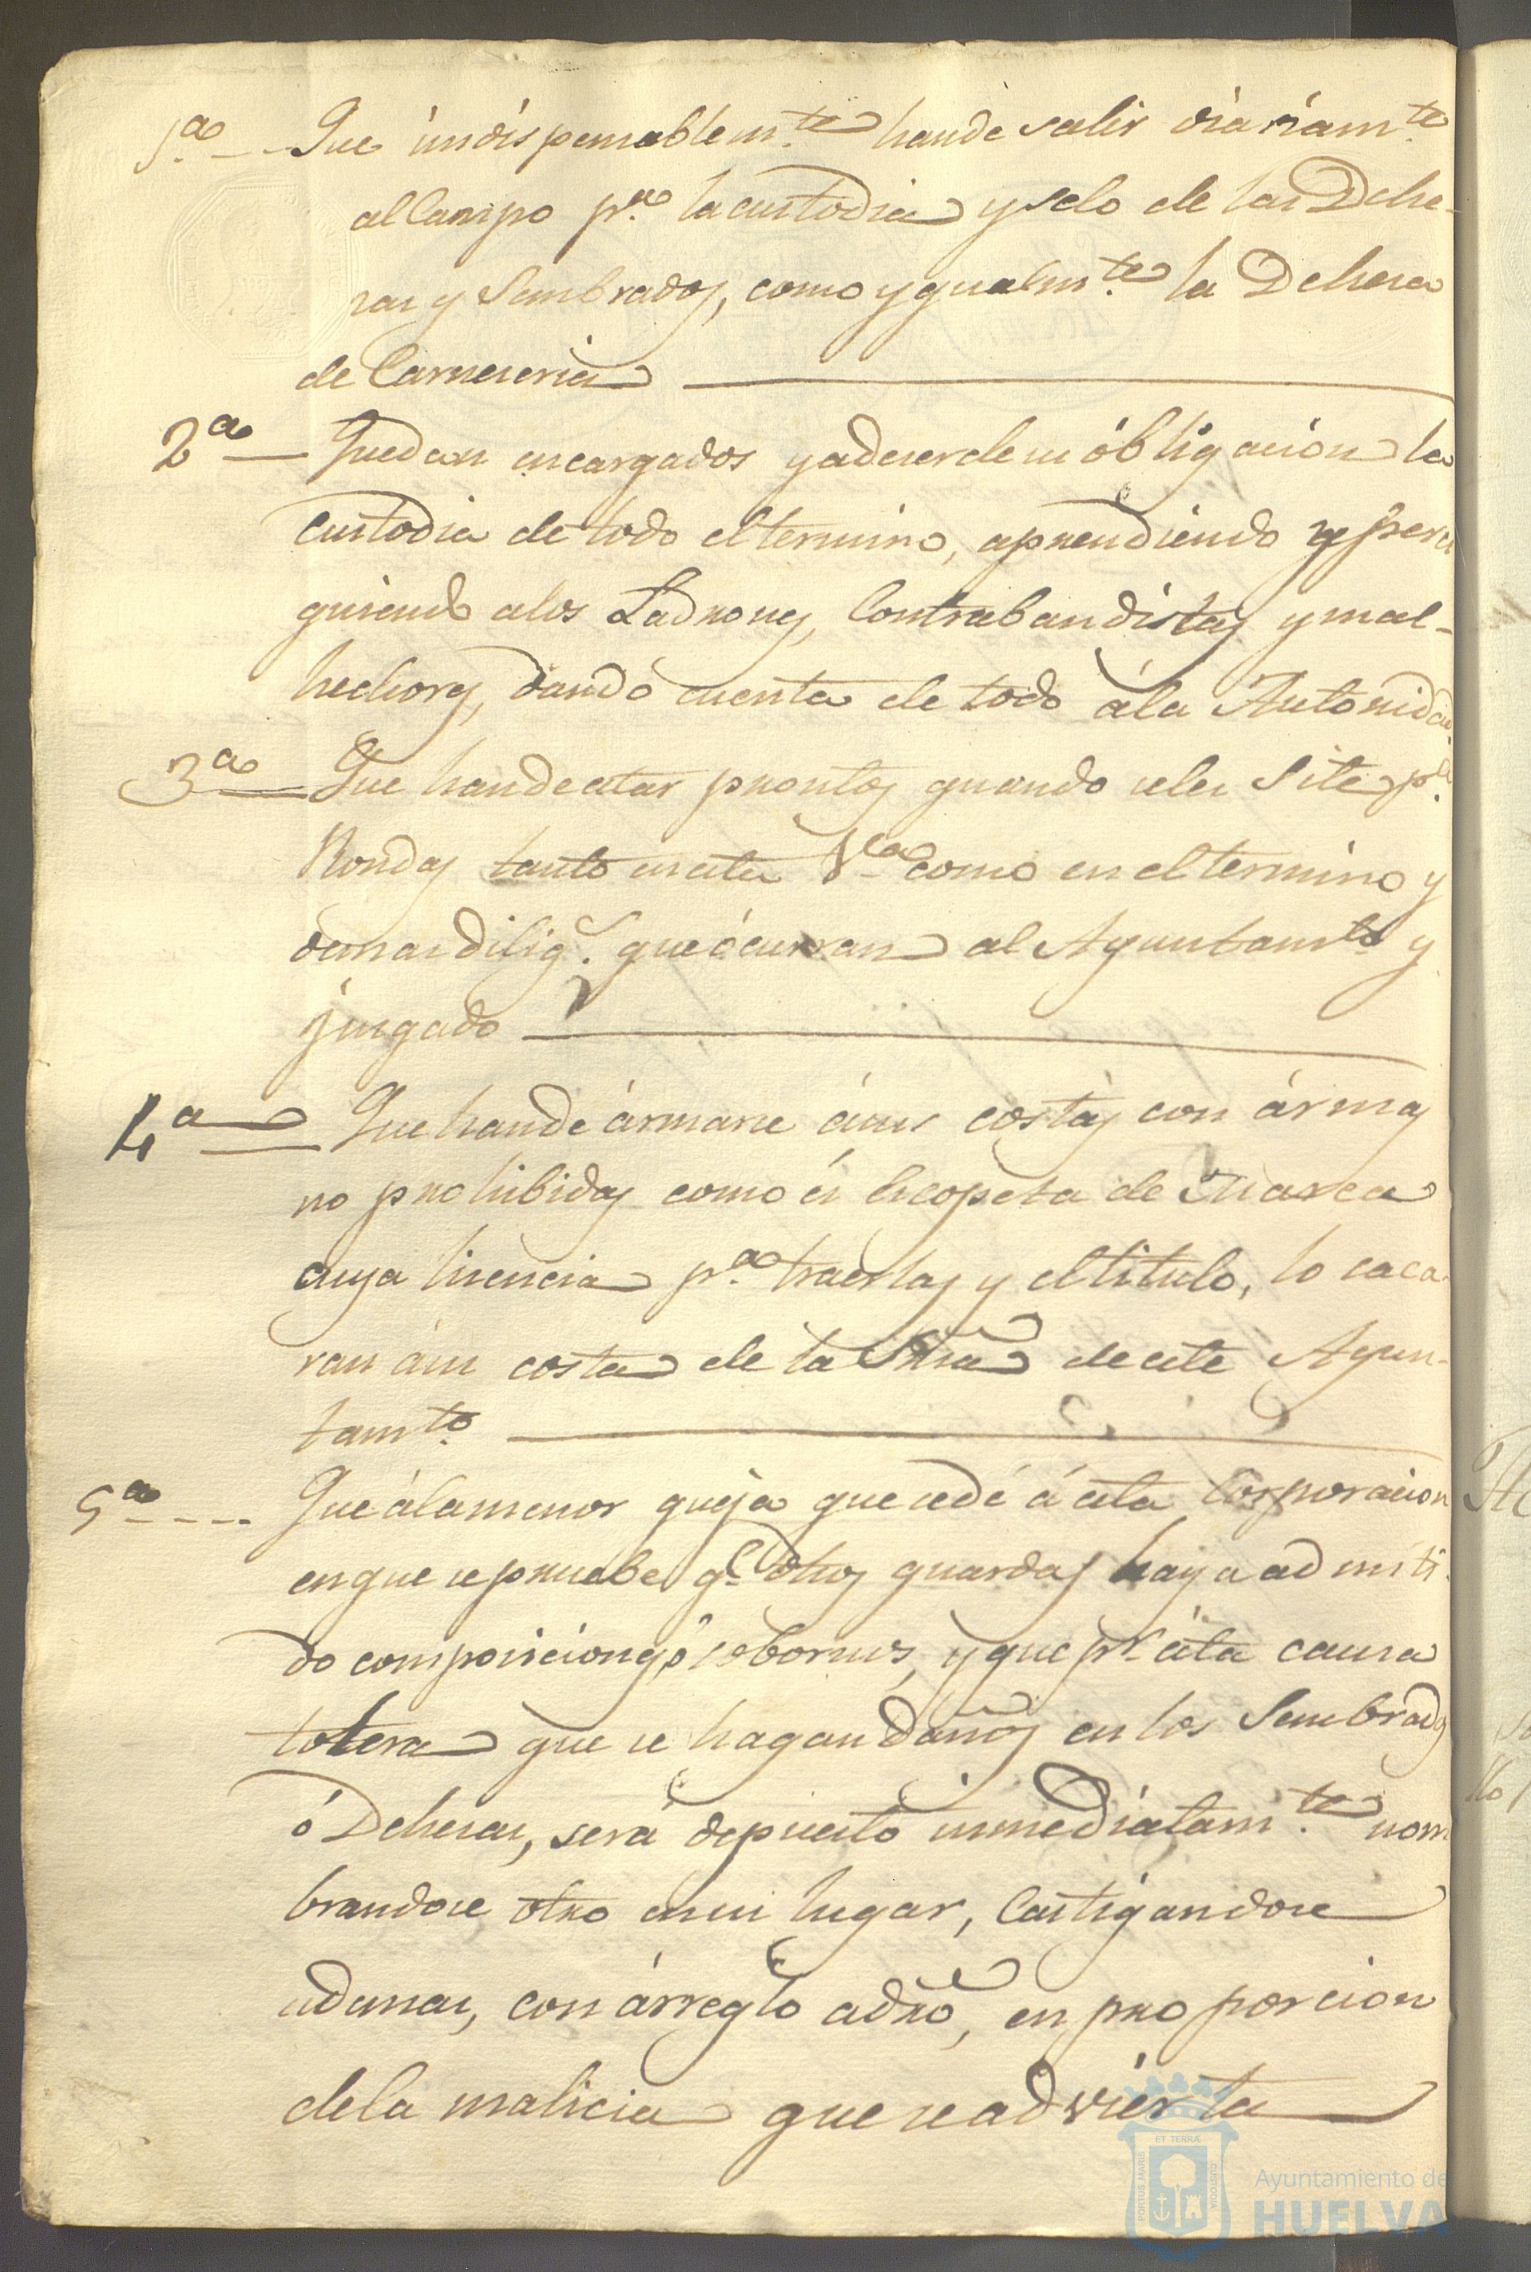 1.ª Que indispensablem.te hande salir diariam.te
al Campo p.ª la custodia y selo de las Dehe-
sas y Sembrados, como ygualm.te la Dehesa
de Carneseria
2ª Quedan encargados y a deser de su óbligacion la
custodia de todo el termino, aprendiendo y perci
guiendo alos Ladrones, Contrabandistas y mal-
hechores, dando cuenta de todo ála Autoridad.
3ª Que hande estar prontos quando seles Site p.ª
Rondas tanto en esta V.ª como en el termino y
demas dilig.s que ócurran al Ayuntam.to y
jusgado
4ª Que hande ármarse ásus costas con ármas
no prohibidas como és Escopeta de Marca
cuya lisencia p.ª traerlas y el titulo, lo saca-
ran ásu costa de la Sria de este Ayun-
tam.to
5ª Que álamenor queja que sedé á esta Corporacion
en que se pruebe q.e dhos guardas haya admiti
do composiciones, ó sobornos, y que p.r esta causa
tolera que se hagan daños en los Sembrados
ó Dehesas, será depuesto inmediatam.te nom
brandose otro en su lugar, Castigandose
ademas, con árreglo a dro, en proporcion
dela malicia que se advierta
PORTUS MARIS ET TERRÆ CUSTODIA
Ayuntamiento de
HUELVA